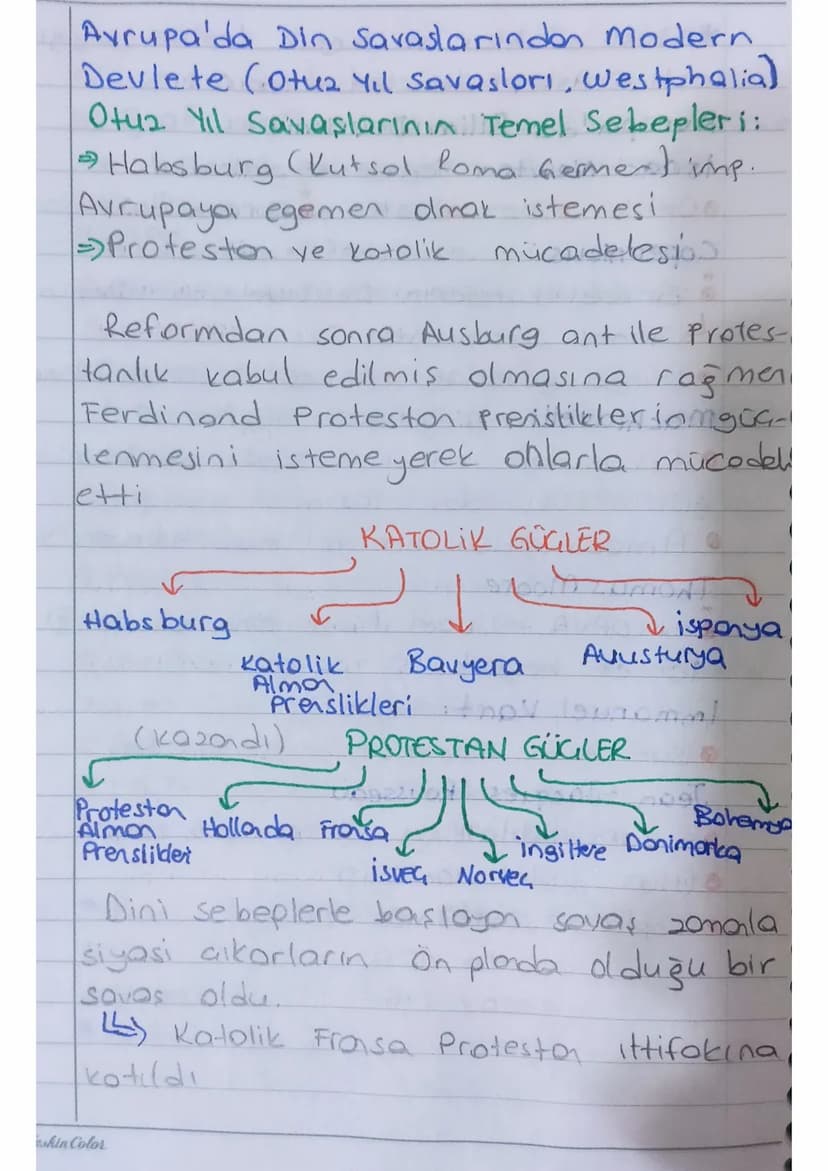 Avrupa'da Din Savaslarından Modern
Devlete (Otuz Yıl Savasları, Westphalia)
Otuz Yıl Savaslarının Temel Sebepleri:
⇒ Habsburg (Kutsal Roma Germen) imp.
Avrupaya egemen olmak istemesi
⇒ Protestan ve Katolik mücadelesi
Reformdan sonra Ausburg ant ile Protes-
tanlık kabul edilmis olmasına rağmen
Ferdinand Protestan güç-
lenmesini istemeyerek onlarla mücadele
etti
KATOLİK GÜÇLER
Habsburg
Katolik Alman Prenslikleri
Bavyera
Avusturya
ispanya
(kazandı) PROTESTAN GÜÇLER
Protestan Alman Prenslikleri
Hollanda
Fransa
isveç
Norveç
ingiltere
Danimarka
Bohemya
Dini sebeplerle baslayan savaş zamanla
siyasi çıkarların ön planda olduğu bir
savas oldu.
↳ Katolik Fransa Protestan ittifakına
katıldı